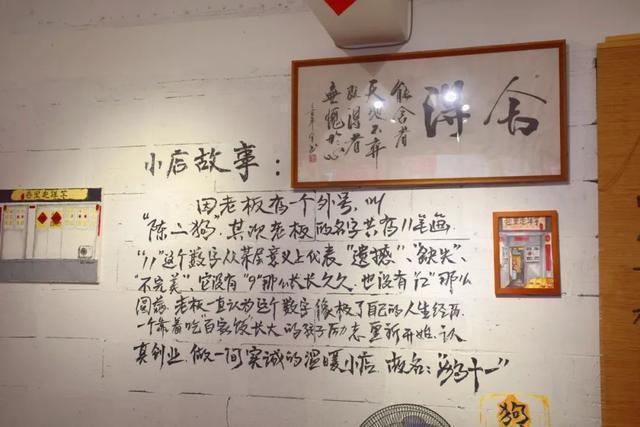 舍得
能舍者
天地不弃
得者
無愧於心
小店故事：
因老板有个外号，叫
“陈二狗”，其次老板的名字共有11笔画
“11”这个数字从某层意义上代表“遗憾”、“缺失”、
“不完美”，它没有“9”那么长长久久，也没有“12”那么
圆满，老板一直认为这个数字像极了自己的人生经历，
一个靠着吃百家饭长大的孩子励志重新开始，认
真创业，做一间实诚的温暖小店，故名：“狗十一”
狗